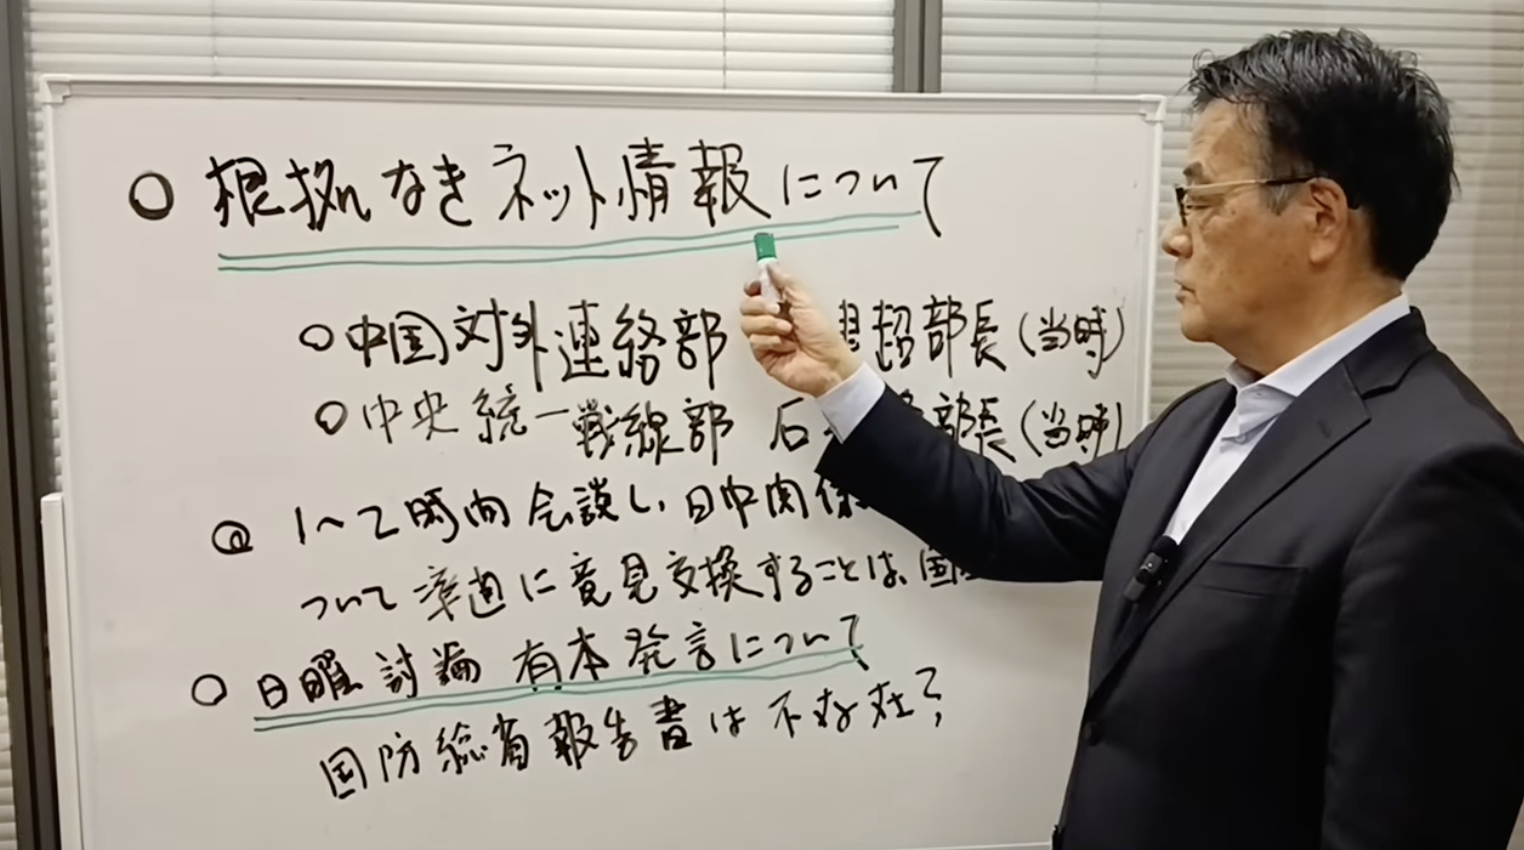 ○ 根拠なきネット情報について
○中国対外連絡部 超部長(当時)
○中央統一戦線部 石 部長(当時)
@ 1〜2時間会談し、日中関係
ついて率直に意見交換することは、国
○ 日曜討論 有本発言について
国防総省報告書は不存在?